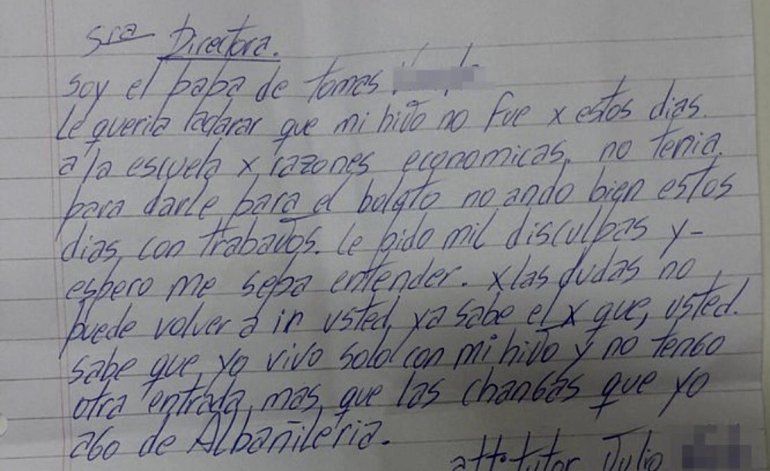 Sra Directora.
Soy el papa de tomas
le queria aclarar que mi hijo no fue x estos dias.
a la escuela x razones economicas, no tenia.
para darle para el boleto no ando bien estos
dias con trabajos. le pido mil disculpas y-
espero me sepa entender. x las dudas no
puede volver a ir usted ya sabe el x que, usted.
sabe que yo vivo solo con mi hijo y no tengo
otra entrada mas que las changas que yo
ago de Albañileria.
att. tutor Julio